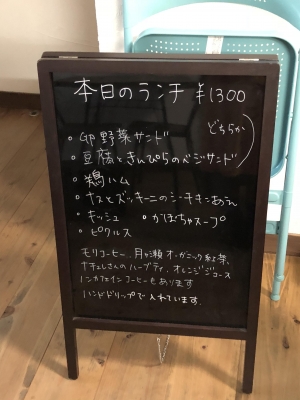 本日のランチ ¥1300
どちらか
・卵野菜サンド
・豆腐ときんぴらのベジサンド
・鶏ハム
・ナスとズッキーニのシーチキンあえ
・キッシュ ・かぼちゃスープ
・ピクルス
モリコーヒー、月ヶ瀬オーガニック紅茶、
ナチュレさんのハーブティ、オレンジジュース
ノンカフェインコーヒーもあります
ハンドドリップで入れています。